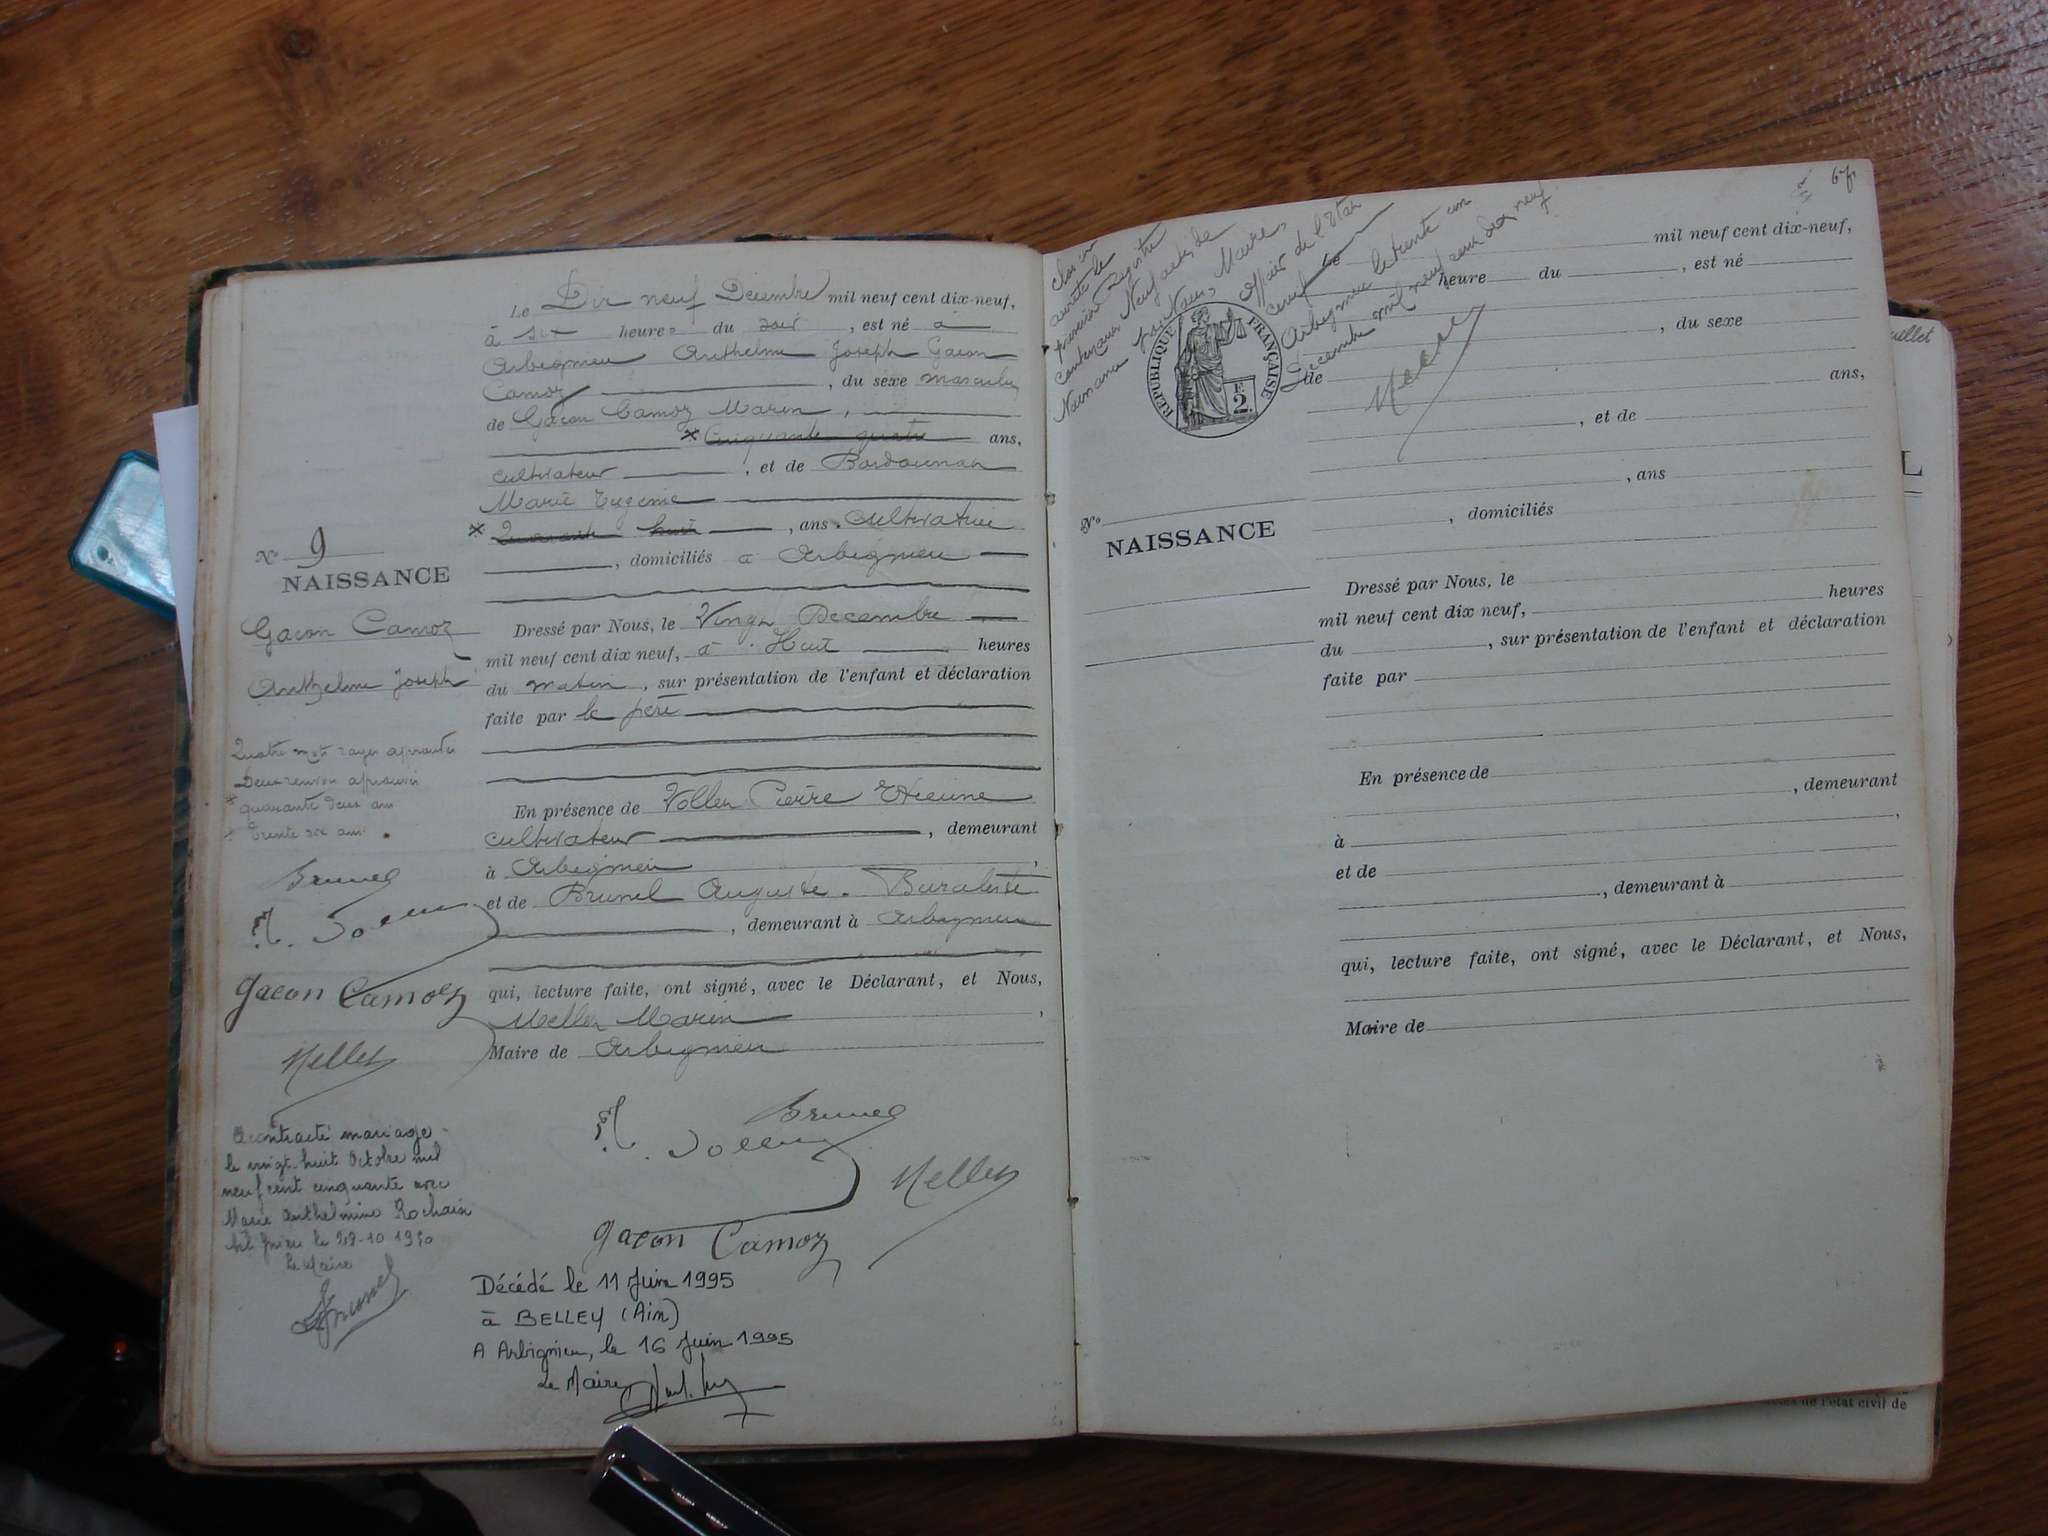 Le Dix neuf Décembre mil neuf cent dix-neuf,
à six heures du soir, est né à
Arbignieu Anthelme Joseph Gacon
Camoz, du sexe masculin
de Gacon Camoz Marin,
* Cinquante quatre ans,
cultivateur, et de
Marie Eugénie
* Quarante huit, ans. Cultivatrice
, domiciliés à Arbignieu
N° 9
NAISSANCE
Gacon Camoz
Anthelme Joseph
Dressé par Nous, le Vingt Decembre
mil neuf cent dix neuf, à Huit heures
du matin, sur présentation de l'enfant et déclaration
faite par le père
Quatre mots rayés approuvés
Deux renvois approuvés
* quarante deux ans
* trente six ans.
En présence de Pierre Etienne
cultivateur, demeurant
à Arbignieu,
et de Brunel Auguste. Buraliste
, demeurant à Arbignieu
qui, lecture faite, ont signé, avec le Déclarant, et Nous,
Mellet Marin,
Maire de Arbignieu
Brunel
Gacon Camoz
Mellet
Brunel
Mellet
Gacon Camoz
A contracté mariage
le vingt-huit Octobre mil
neuf cent cinquante avec
Marie Anthelmine Rochain
le 28-10 1950
Le Maire
Décédé le 11 Juin 1995
à BELLEY (Ain)
A Arbignieu, le 16 Juin 1995
Le Maire
67
Clos et
arrêté le
présent Registre
contenant Neuf actes de
Naissance par Nous, Maire,
Officier de l'Etat
civil
Arbignieu le trente un
Décembre mil neuf cent dix neuf
Mellet
RÉPUBLIQUE FRANÇAISE
F.
2.
Le mil neuf cent dix-neuf,
heure du, est né
, du sexe
de ans,
, et de
, ans
, domiciliés
N°
NAISSANCE
Dressé par Nous, le
mil neuf cent dix neuf, heures
du, sur présentation de l'enfant et déclaration
faite par
En présence de
, demeurant
à,
et de
, demeurant à
qui, lecture faite, ont signé, avec le Déclarant, et Nous,
Maire de
uillet
L
de l'état civil de